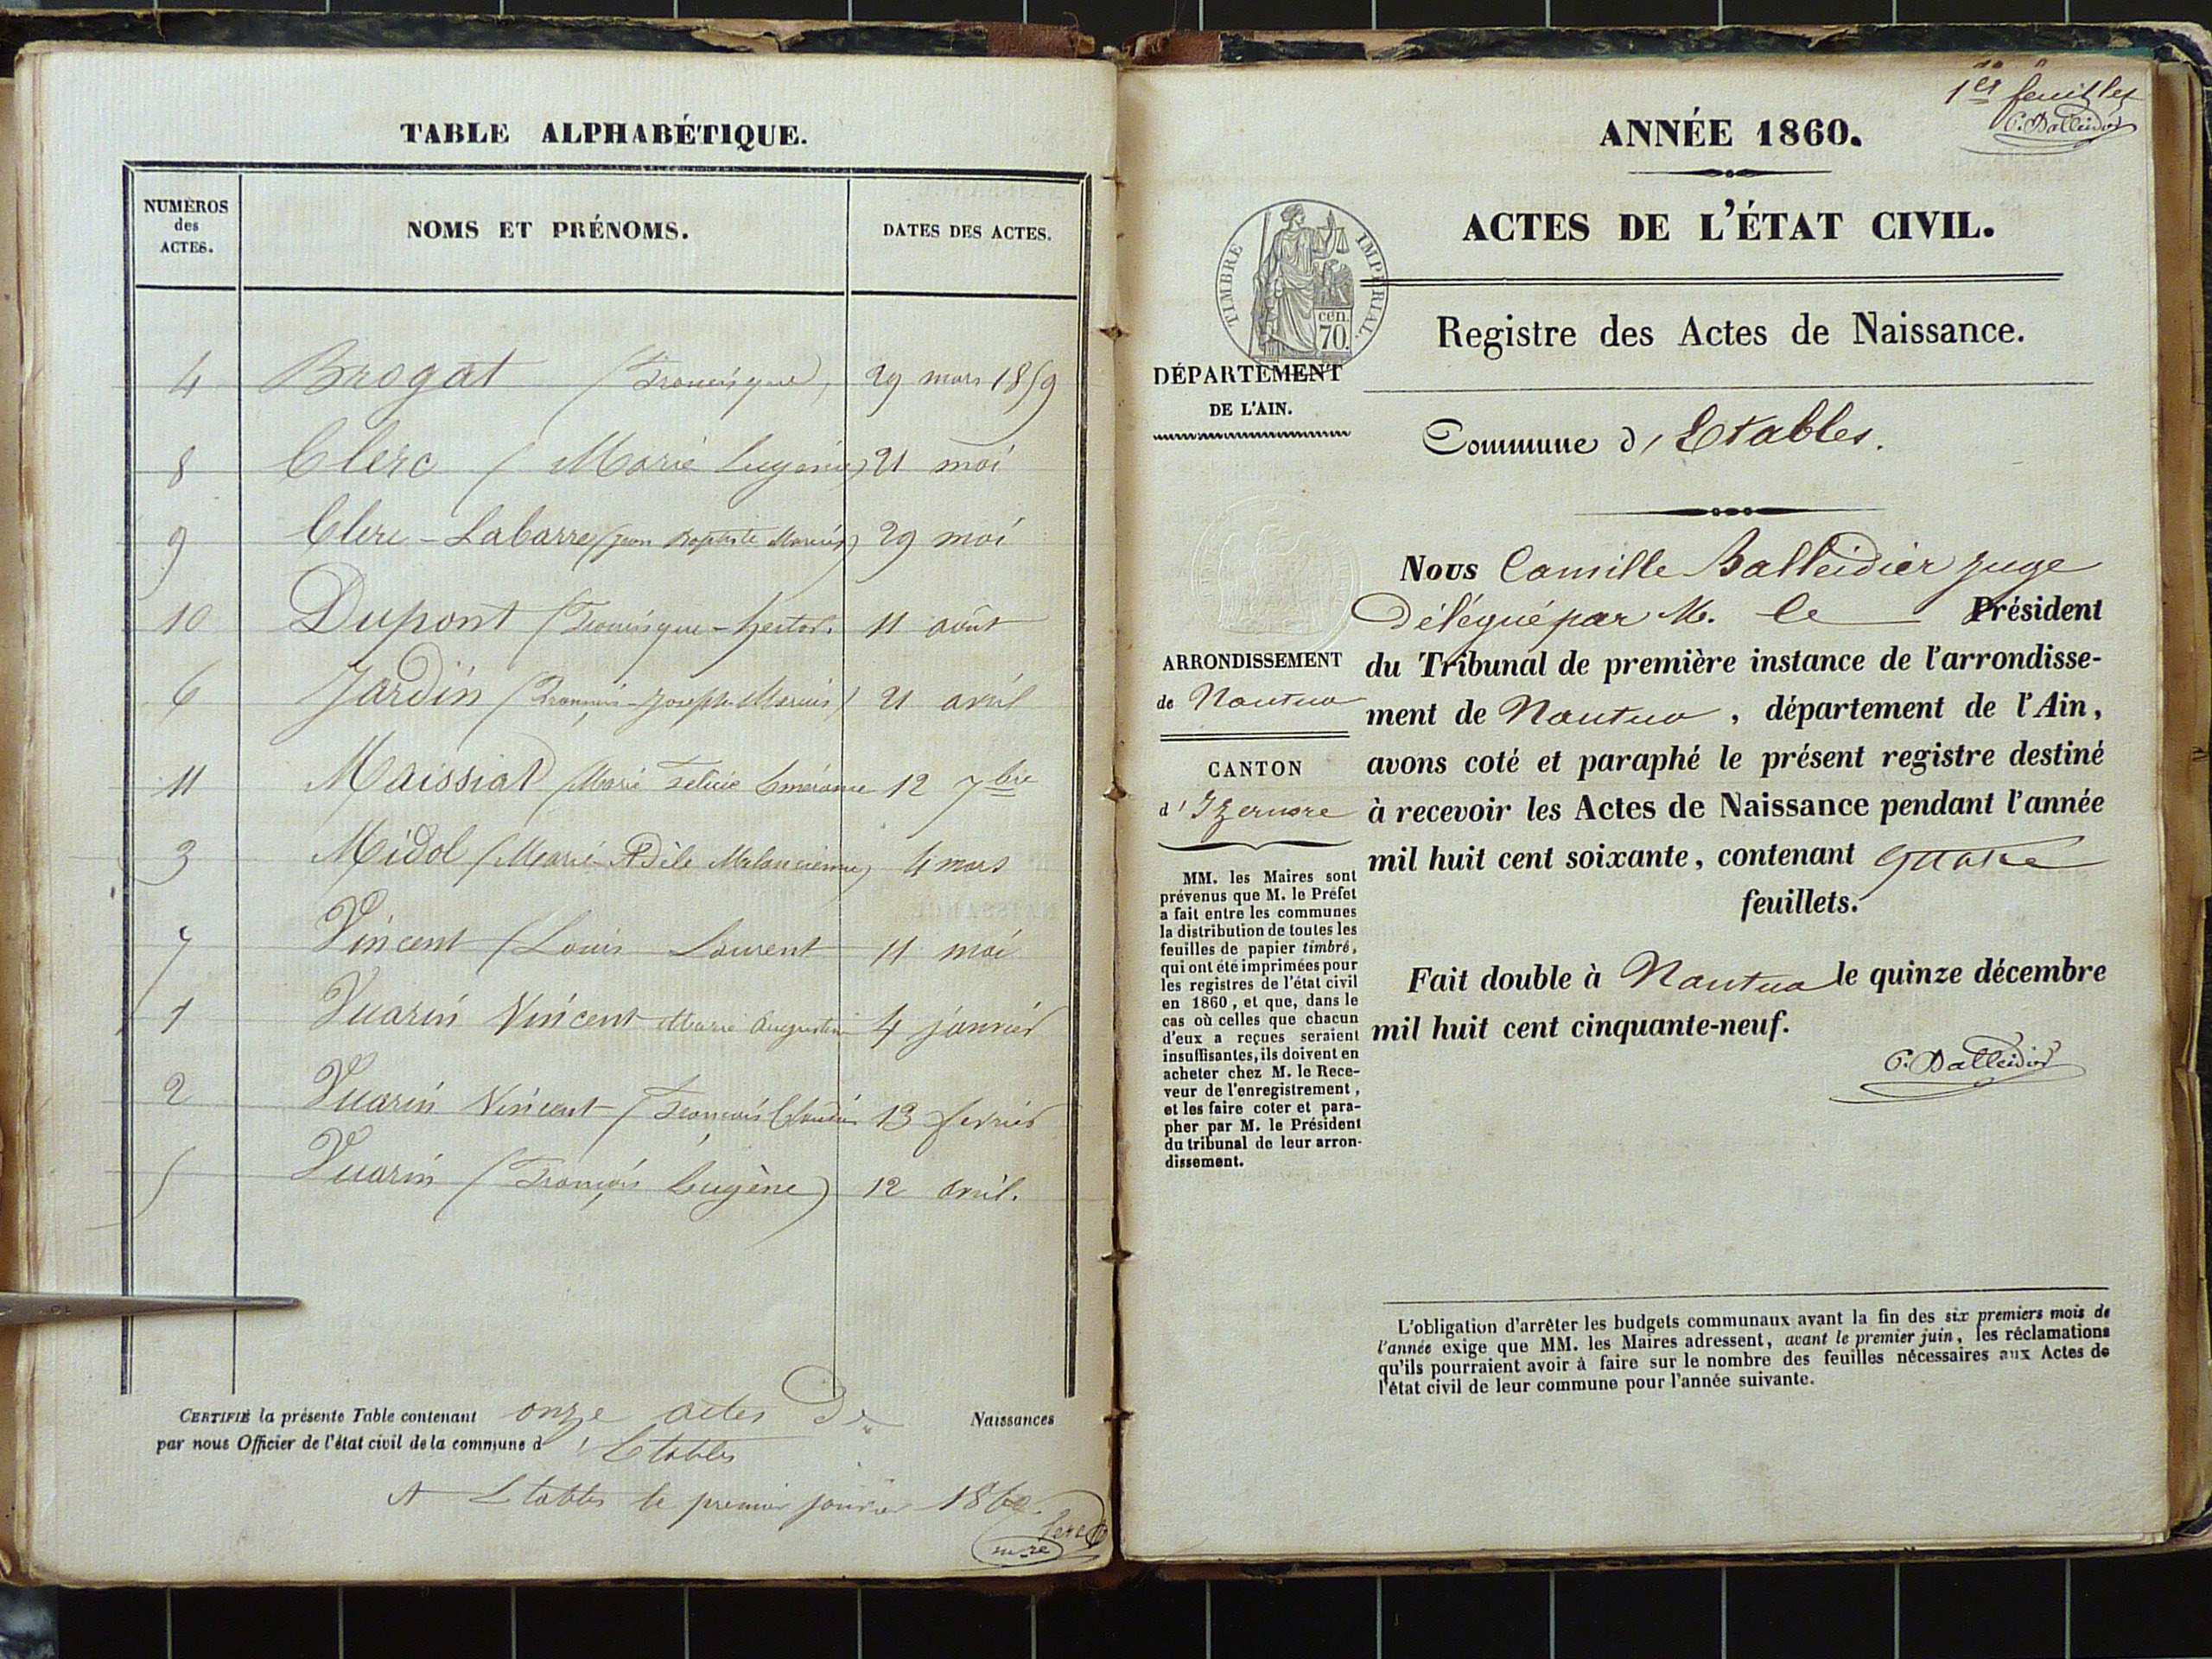 TABLE ALPHABÉTIQUE.
NUMÉROS
des
ACTES.
NOMS ET PRÉNOMS.
DATES DES ACTES.
4 Brogat (Francisque) 29 mars 1859
8 Clerc (Marie Eugénie) 21 mai
9 Clerc-Labarre (jean Baptiste Marius) 29 mai
10 Dupont (Francisque-hector. 11 août
6 Jardin (François-Joseph-Marius) 21 avril
11 Maissiat (Marie Felicie 12 7bre
3 Midol (Marie-Adèle 4 mars
7 Vincent (Louis-Laurent 11 mai
1 Vuarin Vincent Marie Augustin 4 janvier
2 Vuarin Vincent (François Claudius 13 fevrier
5 Vuarin (François Eugène) 12 avril.
CERTIFIÉ la présente Table contenant onze actes De Naissances
par nous Officier de l'état civil de la commune d'Etables
A Etables le premier janvier 1860.
1er feuillet
C. Balleidier
ANNÉE 1860.
ACTES DE L'ÉTAT CIVIL.
TIMBRE IMPÉRIAL.
cen.
70.
Registre des Actes de Naissance.
DÉPARTEMENT
DE L'AIN.
Commune d'Etables.
Nous Camille Balleidier juge
Délégué par M. le Président
du Tribunal de première instance de l'arrondisse-
ment de Nantua, département de l'Ain,
avons coté et paraphé le présent registre destiné
à recevoir les Actes de Naissance pendant l'année
mil huit cent soixante, contenant quatre
feuillets.
Fait double à Nantua le quinze décembre
mil huit cent cinquante-neuf.
C. Balleidier
ARRONDISSEMENT
de Nantua
CANTON
d'Izernore
MM. les Maires sont
prévenus que M. le Préfet
a fait entre les communes
la distribution de toutes les
feuilles de papier timbré,
qui ont été imprimées pour
les registres de l'état civil
en 1860, et que, dans le
cas où celles que chacun
d'eux a reçues seraient
insuffisantes, ils doivent en
acheter chez M. le Rece-
veur de l'enregistrement,
et les faire coter et para-
pher par M. le Président
du tribunal de leur arron-
dissement.
L'obligation d'arrêter les budgets communaux avant la fin des six premiers mois de
l'année exige que MM. les Maires adressent, avant le premier juin, les réclamations
qu'ils pourraient avoir à faire sur le nombre des feuilles nécessaires aux Actes de
l'état civil de leur commune pour l'année suivante.